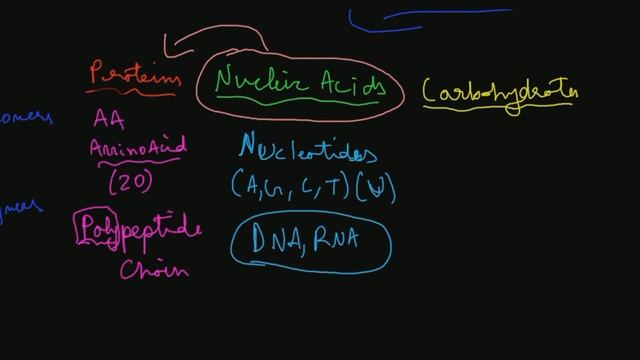 Proteins
Nucleic Acids
Carbohydrates
omers
AA
Amino Acid
(20)
Nucleotides
(A, G, C, T) (U)
ymers
Polypeptide
Chain
DNA, RNA